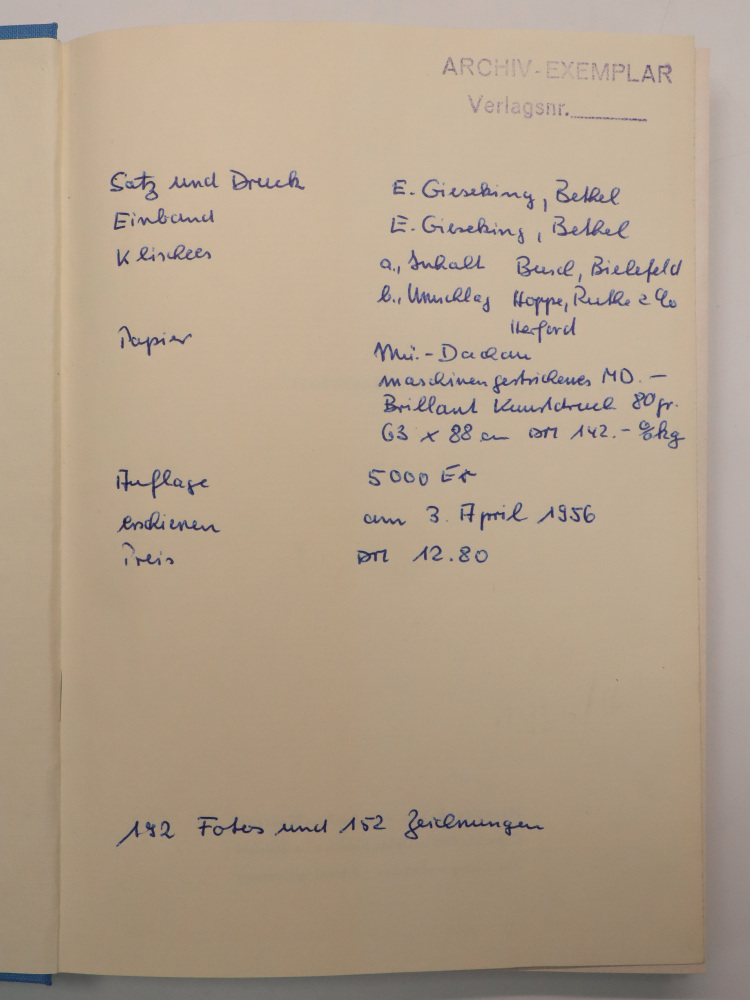 ARCHIV-EXEMPLAR
Verlagsnr.
Satz und Druck E. Gieseking, Bethel
Einband E. Gieseking, Bethel
Klischees a., Inhalt Busch, Bielefeld
b., Umschlag Hoppe, Ruthe & Co
Herford
Papier Mü.-Dachau
maschinengestrichenes MD.-
Brillant Kunstdruck 80 gr.
63 x 88 cm DM 142.- %kg
Auflage 5000
erschienen am 3. April 1956
Preis DM 12.80
192 Fotos und 152 Zeichnungen